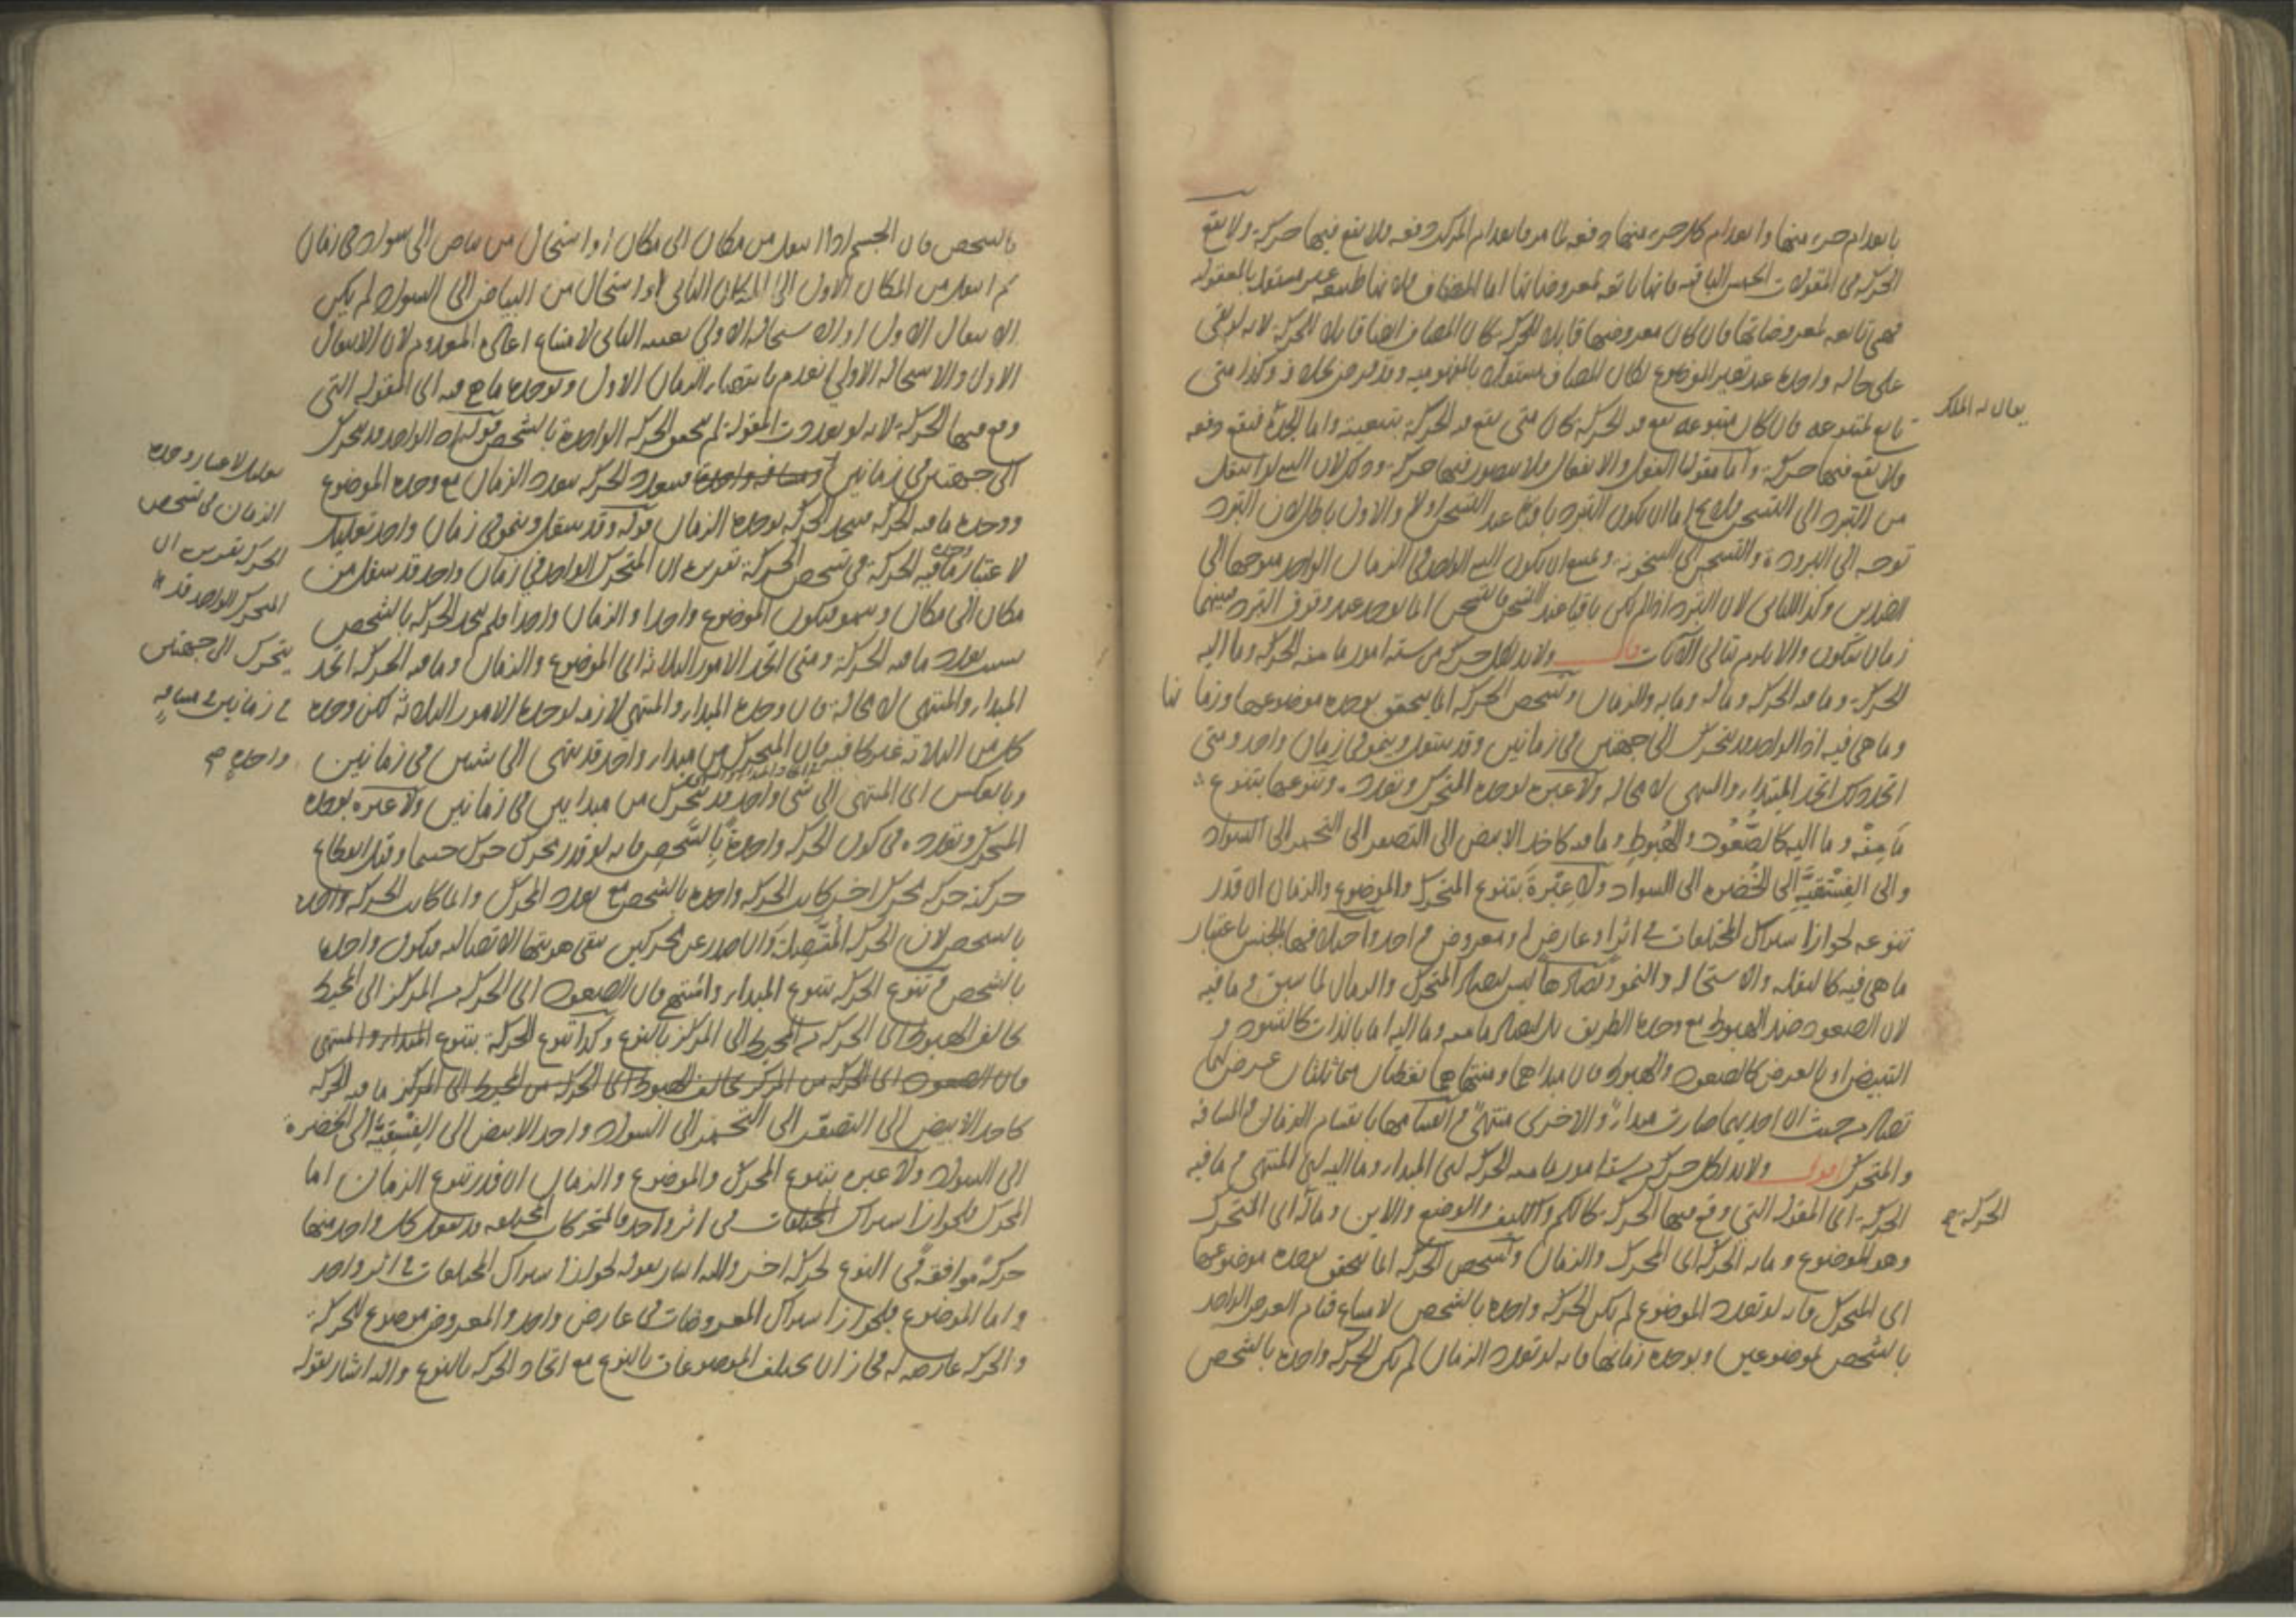 بانعدام جزء منها وانعدام كل جزء منها دفعة لما مر فانعدام المركب دفعة فلا تقع فيها حركة ولا تقع
الحركة في المقولات الخمس الباقية فانها تابعة لمعروضاتها اما المضاف فلانها طبيعة غير مستقلة بالمعقولية
فهي تابعة لمعروضاتها فان كان معروضها قابلا للحركة كان المضاف ايضا قابلا للحركة لانه لو بقي
على حالة واحدة عند تغير الموضوع لكان المضاف مستقلا بالمفهومية وقد فرض بخلاف وكذا متى
تابع لمتبوعه فان كان متبوعه تقع فيه الحركة كان متى تقع فيه الحركة بتبعيته واما الجدة فتقع دفعة
يقال له الملك
ولا تقع فيها حركة واما مقولتا الفعل والانفعال فلا يتصور فيها حركة وذلك لان الشيء لو انتقل
من التبرد الى التسخن فلا يخ اما ان يكون التبرد باقيا عند التسخن او لا والاول باطل لان التبرد
توجه الى البرودة والتسخن الى السخونة ويمتنع ان يكون الشيء الواحد في الزمان الواحد متوجها الى
الضدين وكذا الثاني لان التبرد اذا لم يكن باقيا عند التسخن فالتسخن انما يوجد عند وقوف التبرد فبينهما
زمان سكون والا يلزم تتالي الآنات قال ولا بد لكل حركة من ستة امور ما منه الحركة وما اليه
الحركة وما فيه الحركة وما له وما به والزمان وتشخص الحركة انما يتحقق بوحدة موضوعها وزمانها
وما هي فيه اذ الواحد قد يتحرك الى جهتين في زمانين وقد ينتقل وينمو في زمان واحد ومتى
اتحد ذلك اتحد المبتدا والمنتهى لا محالة ولا عبرة لوحدة المتحرك وتعدده وتنوعها بتنوع
ما منه وما اليه كالصعود والهبوط وما فيه كاخذ الابيض الى التصفر الى التحمر الى السواد
والى الفستقية الى الخضرة الى السواد ولا عبرة بتنوع المتحرك والموضوع والزمان ان قدر
تنوعه لجواز اشتراك المختلفات في اثر وعارض ومعروض واحد واختلافها بالجنس باعتبار
ما هي فيه كالنقلة والاستحالة والنمو وتضادها ليس لتضاد المتحرك والزمان لما سبق وما فيه
لان الصعود ضد الهبوط مع وحدة الطريق بل لتضاد ما منه وما اليه اما بالذات كالتسود و
التبيض او بالعرض كالصعود والهبوط فان مبداهما ومنتهاهما نقطتان متماثلتان عرض لهما
تضاد من حيث ان احديهما صارت مبدا والاخرى منتهى وانقسامها بانقسام الزمان والمسافة
والمتحرك اقول ولا بد لكل حركة من ستة امور ما منه الحركة اي المبدا وما اليه اي المنتهى وما فيه
الحركة اي المقولة التي وقع فيها الحركة كالكم والكيف والوضع والاين وما له اي المتحرك
الحركة صح
وهو الموضوع وما به الحركة اي المحرك والزمان وتشخص الحركة انما يتحقق بوحدة موضوعها
اي المتحرك فانه لو تعدد الموضوع لم يكن الحركة واحدة بالشخص لامتناع قيام العرض الواحد
بالشخص لموضوعين وبوحدة زمانها فانه لو تعدد الزمان لم يكن الحركة واحدة بالشخص
بالشخص فان الجسم اذا انتقل من مكان الى مكان او استحال من بياض الى سواد في زمان
ثم انتقل من المكان الاول الى المكان الثاني او استحال من البياض الى السواد لم يكن
الانتقال الاول او الاستحالة الاولى بعينه الثاني لامتناع اعادة المعدوم لان الانتقال
الاول والاستحالة الاولى انعدم بانقضاء الزمان الاول وبوحدة ما هي فيه اي المقولة التي
وقع فيها الحركة لانه لو تعددت المقولة لم تتحقق الحركة الواحدة بالشخص قوله اذ الواحد قد يتحرك
الى جهتين في زمانين ومسافة واحدة فيتعدد الحركة بتعدد الزمان مع وحدة الموضوع
ووحدة ما فيه الحركة فيتحد الحركة بوحدة الزمان قوله وقد ينتقل وينمو في زمان واحد تعليل
لاعتبار وحدة ما فيه الحركة في تشخص الحركة تقديره ان المتحرك الواحد في زمان واحد قد ينتقل من
مكان الى مكان وينمو فيكون الموضوع واحدا والزمان واحدا فلم يتحد الحركة بالشخص
بسبب تعدد ما فيه الحركة ومتى اتحد الامور الثلاثة اي الموضوع والزمان وما فيه الحركة اتحد
المبدا والمنتهى لا محالة فان وحدة المبدا والمنتهى لازمة لوحدة الامور الثلاثة لكن وحدة
كل من الثلاثة غير كافية فان المتحرك من مبدا واحد قد ينتهي الى شيئين في زمانين
وبالعكس اي المنتهى الى شيء واحد قد يتحرك من مبدايين في زمانين ولا عبرة بوحدة
تعليل لاعتبار وحدة
الزمان في تشخص
الحركة تقديره ان
المتحرك الواحد قد
يتحرك الى جهتين
في زمانين في مسافة
واحدة صح
المتحرك وتعدده في كون الحركة واحدة بالشخص فانه لو قدر محرك حرك جسما وقبل انقطاع
حركته حركه محرك اخر كانت الحركة واحدة بالشخص مع تعدد المحرك وانما كانت الحركة واحدة
بالشخص لان الحركة المتصلة وان صدر عن محركين تبقى هويتها الاتصالية فيكون واحدة
بالشخص وتنوع الحركة بتنوع المبدا والمنتهى فان الصعود اي الحركة من المركز الى المحيط
يخالف الهبوط اي الحركة من المحيط الى المركز بالنوع وكذا تنوع الحركة بتنوع المبدا والمنتهى
فان الصعود اي الحركة من المركز يخالف الهبوط اي الحركة من المحيط الى المركز ما فيه الحركة
كاخذ الابيض الى التصفر الى التحمر الى السواد واخذ الابيض الى الفستقية الى الخضرة
الى السواد ولا عبرة بتنوع المحرك والموضوع والزمان ان قدر تنوع الزمان اما
المحرك فلجواز اشتراك المختلفات في اثر واحد فالمتحركات المختلفة قد تفعل كل واحد منها
حركة موافقة في النوع لحركة اخر واليه اشار بقوله لجواز اشتراك المختلفات في اثر واحد
واما الموضوع فلجواز اشتراك المعروضات في عارض واحد والمعروض موضوع للحركة
والحركة عارضة له فجاز ان يختلف الموضوعات بالنوع مع اتحاد الحركة بالنوع واليه اشار بقوله